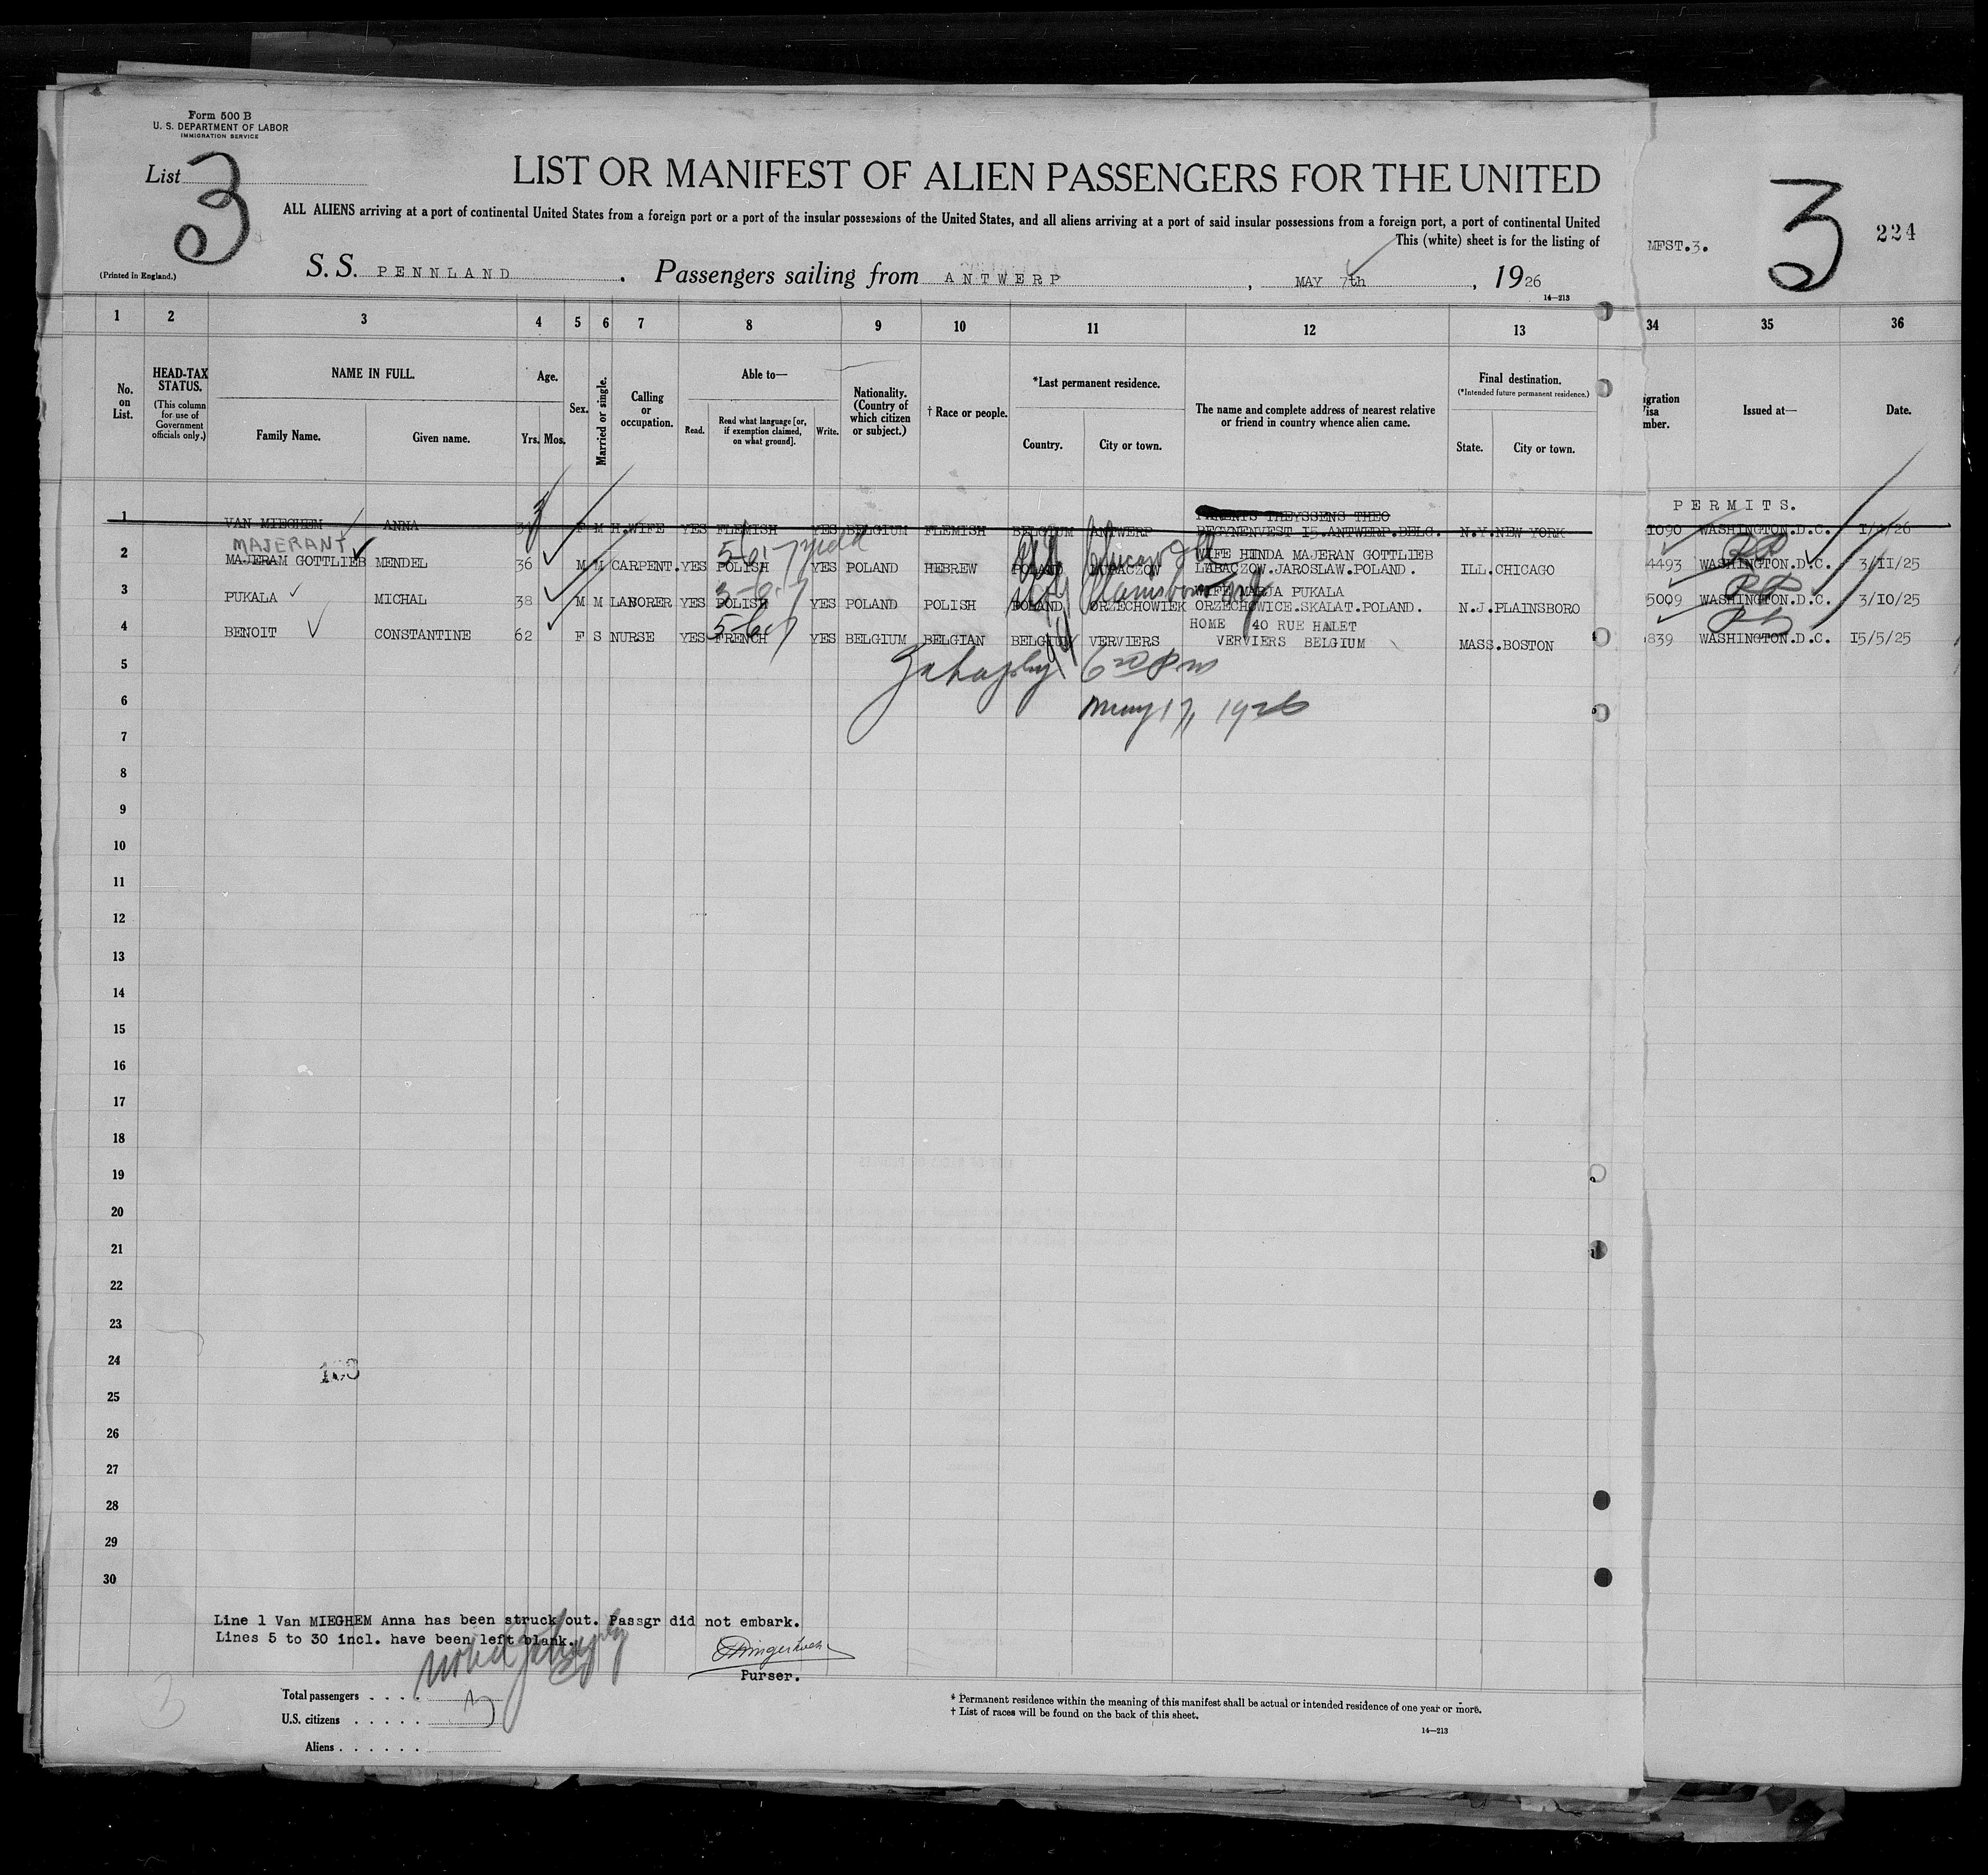 Form 500 B
U. S. DEPARTMENT OF LABOR
IMMIGRATION SERVICE
List 3
LIST OR MANIFEST OF ALIEN PASSENGERS FOR THE UNITED
ALL ALIENS arriving at a port of continental United States from a foreign port or a port of the insular possessions of the United States, and all aliens arriving at a port of said insular possessions from a foreign port, a port of continental United
This (white) sheet is for the listing of
(Printed in England.)
S. S. PENNLAND. Passengers sailing from ANTWERP, MAY 7th, 1926
14—213
MFST.3. 3 224
1 2 3 4 5 6 7 8 9 10 11 12 13 34 35 36
No. on List.
HEAD-TAX STATUS.
(This column for use of Government officials only.)
NAME IN FULL.
Family Name. Given name.
Age.
Yrs. Mos.
Sex.
Married or single.
Calling or occupation.
Able to—
Read. Read what language [or, if exemption claimed, on what ground]. Write.
Nationality. (Country of which citizen or subject.)
† Race or people.
*Last permanent residence.
Country. City or town.
The name and complete address of nearest relative or friend in country whence alien came.
Final destination.
(*Intended future permanent residence.)
State. City or town.
Issued at—
Date.
PERMITS.
PARENTS THEYSSENS THEO
1 VAN MIEGHEM ANNA F M H.WIFE YES FLEMISH YES BELGIUM FLEMISH BELGIUM ANTWERP BEGYNENVEST I5.ANTWERP.BELG. N.Y.NEW YORK 1090 WASHINGTON.D.C.
MAJERANT
WIFE HINDA MAJERAN GOTTLIEB
2 MAJERAM GOTTLIEB MENDEL 36 M M CARPENT. YES POLISH YES POLAND HEBREW POLAND LUBACZOW LUBACZOW.JAROSLAW.POLAND. ILL.CHICAGO 4493 WASHINGTON.D.C. 3/II/25
WIFE MARJA PUKALA
3 PUKALA MICHAL 38 M M LABORER YES POLISH YES POLAND POLISH POLAND ORZECHOWIEK ORZECHOWICE.SKALAT.POLAND. N.J.PLAINSBORO 5009 WASHINGTON.D.C. 3/10/25
HOME 40 RUE HANLET
4 BENOIT CONSTANTINE 62 F S NURSE YES FRENCH YES BELGIUM BELGIAN BELGIUM VERVIERS VERVIERS BELGIUM MASS.BOSTON 839 WASHINGTON.D.C. I5/5/25
5
6 May 17, 1926
7
8
9
10
11
12
13
14
15
16
17
18
19
20
21
22
23
24
25
26
27
28
29
30
Line 1 Van MIEGHEM Anna has been struck out. Passgr did not embark.
Lines 5 to 30 incl. have been left blank.
Purser.
Total passengers . . . .
U.S. citizens . . . . .
Aliens . . . . . .
* Permanent residence within the meaning of this manifest shall be actual or intended residence of one year or more.
† List of races will be found on the back of this sheet.
14—213